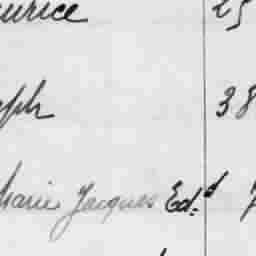 urice 25
eph 38
Marie Jacques Ed.d